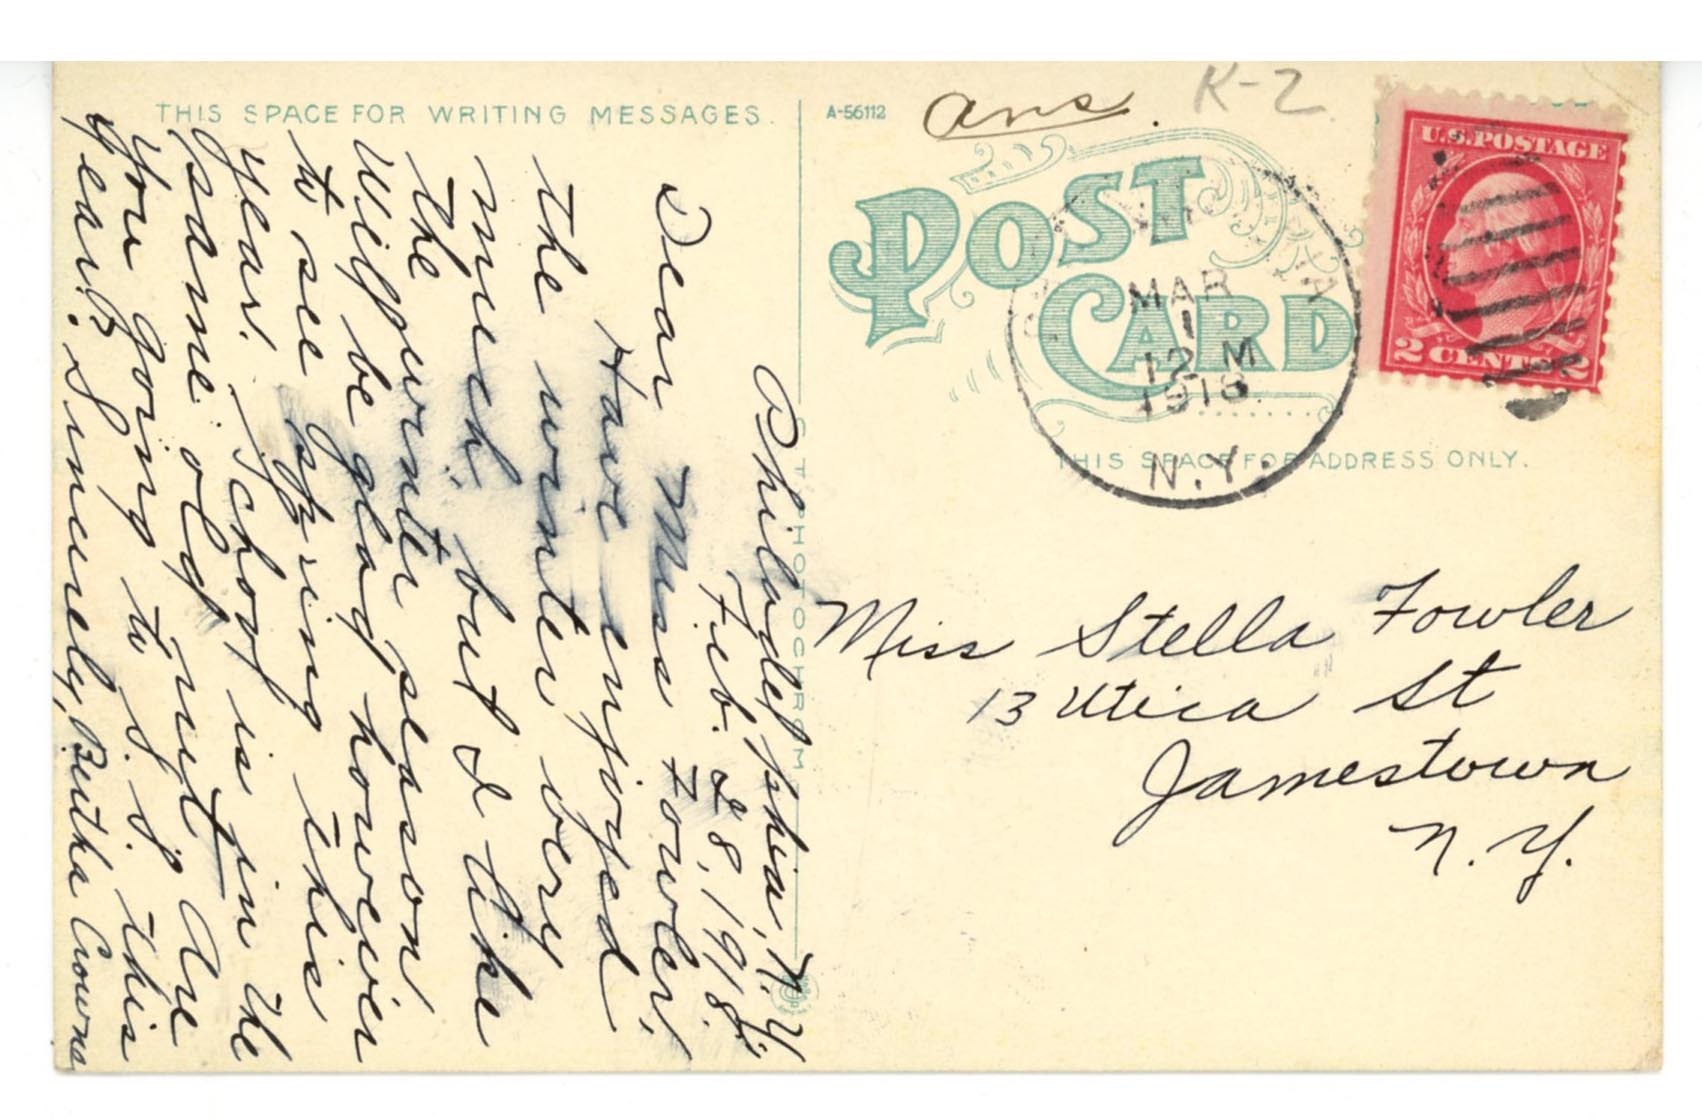 THIS SPACE FOR WRITING MESSAGES.
Philadelphia, N.Y.
Feb. 28, 1918.
Dear Miss Fowler:
Have enjoyed
the winter very
much, but I like
the
Will be glad however
to see Spring this
year. School is fin the
same old rut. Are
you going to S. S. this
year? Sincerely, Bertha
A-56112
ans.
K-2
POST
CARD
MAR
1
12 M
1918
N.Y.
U.S. POSTAGE
2 CENTS 2
THIS SPACE FOR ADDRESS ONLY.
Miss Stella Fowler
13 Utica St
Jamestown
N.Y.